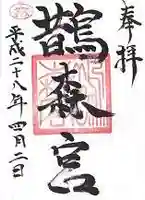 奉拝
鵲森宮
平成二十八年四月二日